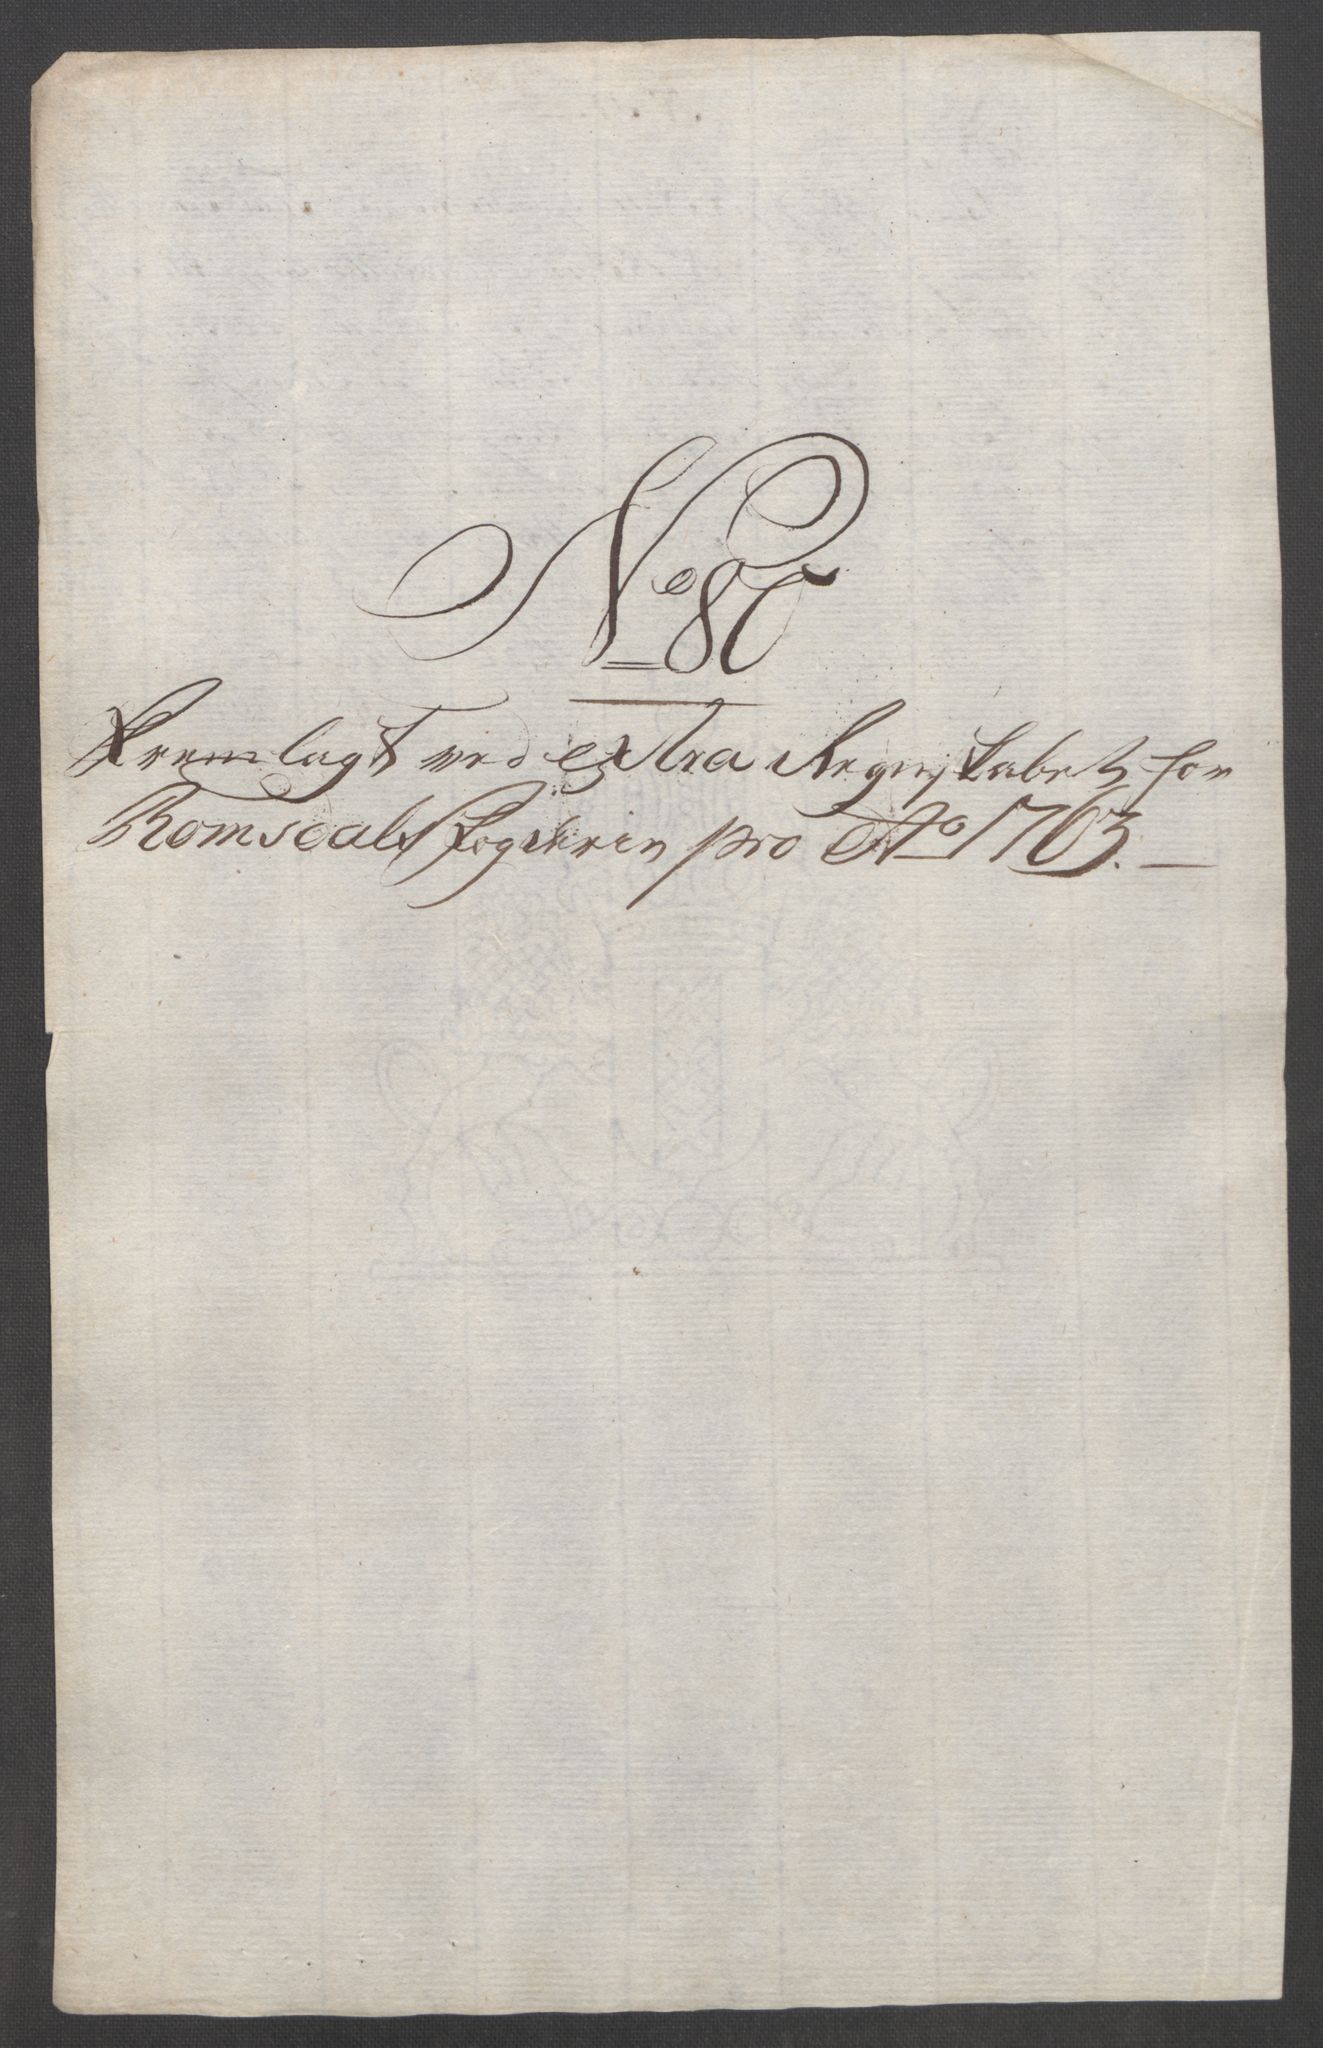 No 80
Fremlagt ved extra Regnskabet for
Romsdals Fogderie pro Ao 1763.